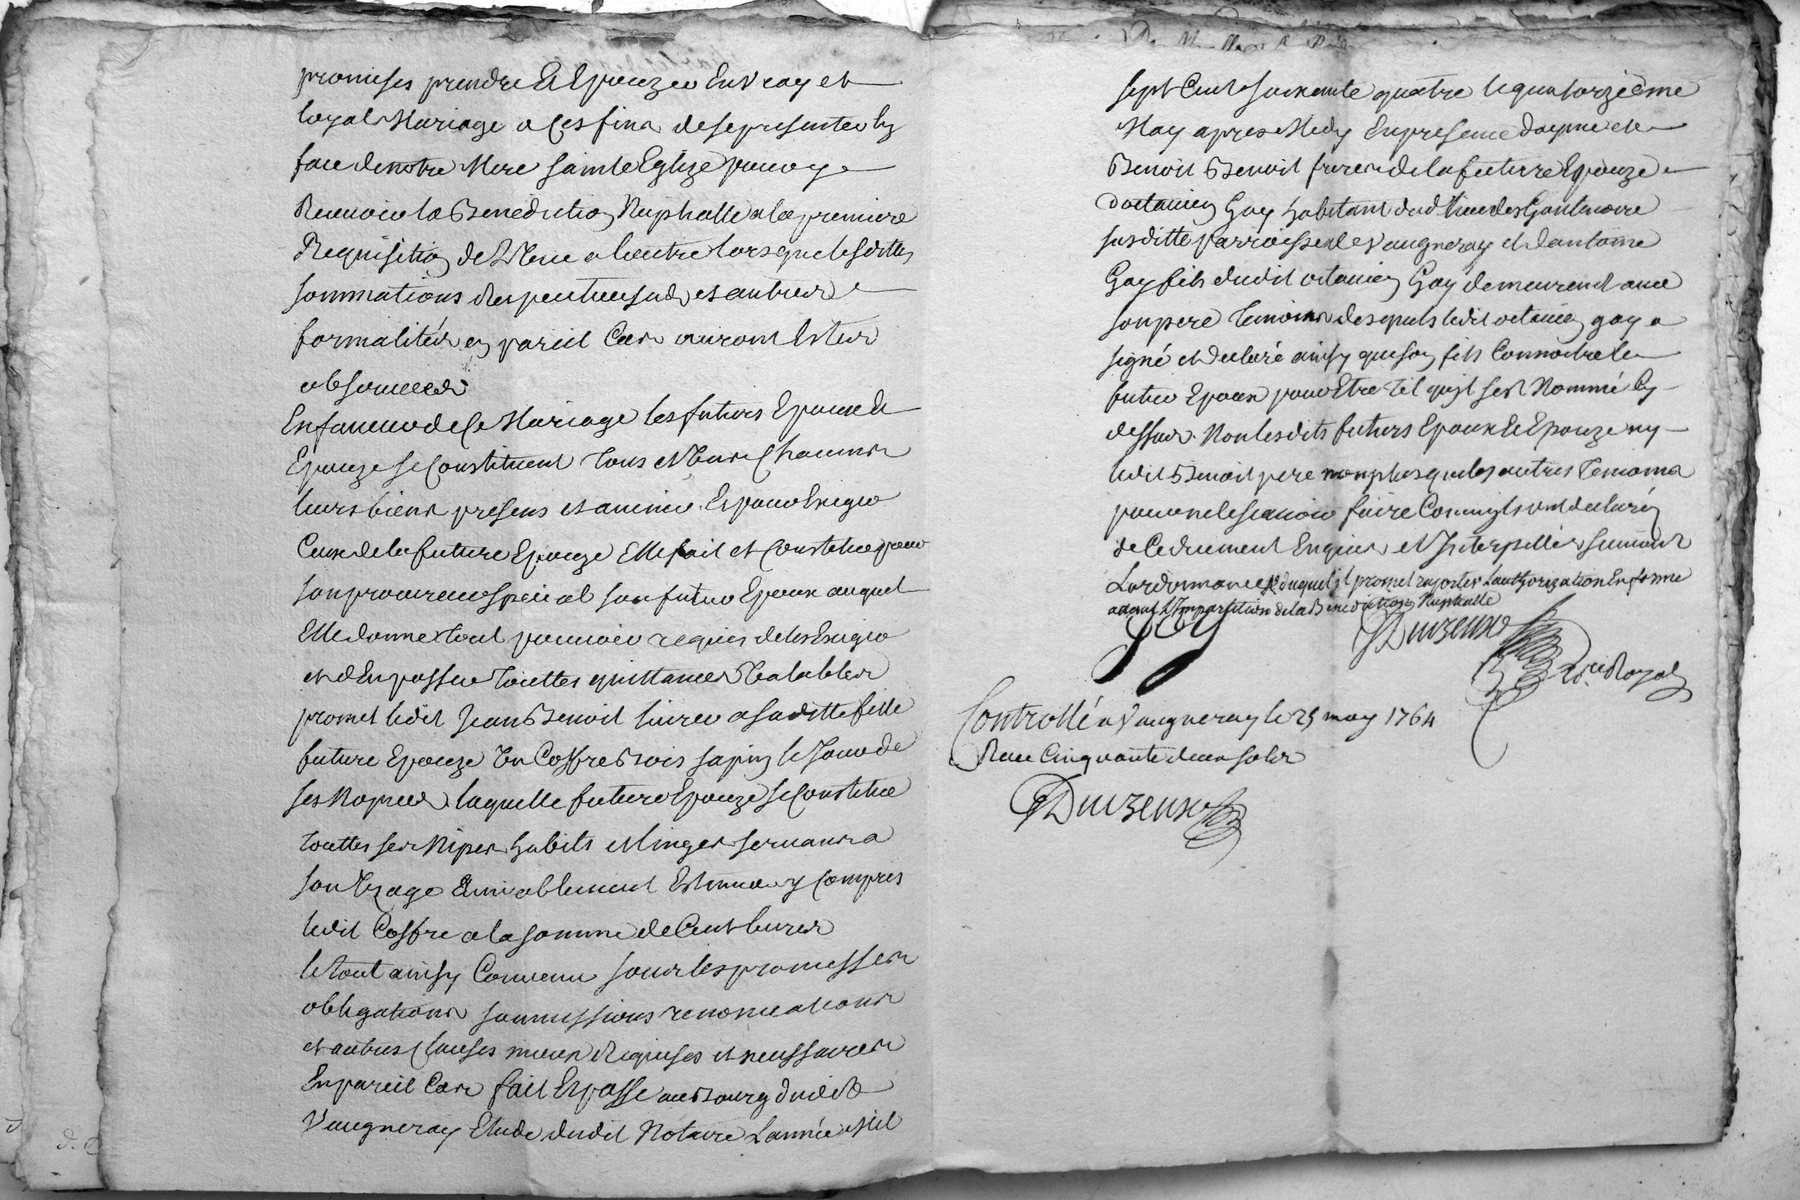 promises prendre Et Epouzer En vray et
loyal Mariage a Ces fins de se presenter En
face de notre Mere Sainte Eglize pour y
Recevoir la Benediction Nuphalle a la premiere
Requisition de L'Une a L'autre lors que lesdittes
sommations Respectueusude et autres
formalités en pareil Cas auront Estés
observeés
En faveur de Ce Mariage les futurs Epoux et
Epouze se Constituent tous et Uns Chacuns
leurs biens presens et avenir Et pour Exiger
Ceux de la future Epouze Elle fait et Constitue pour
son procureur special son futur Epoux auquel
Elle donne tout pouvoir requis de les Exiger
et d'En passer touttes quittances Valables
promet ledit Jean Benoit livrer a saditte fille
future Epouze Un Coffre Bois sapin le Jour de
ses Nopces laquelle future Epouze se Constitue
touttes ses Nipes habits et linges servans a
son Uzage amiablement Estimés y Compris
ledit Coffre a la somme de Cent livres
le tout ainsy Convenu sous les promesses
obligations soumissions renonciations
et autres Clauses mieux Requises et necessaires
En pareil Cas fait Et passe au Bourg dudit
Vaugneray Etude dudit Notaire L'année Mil
sept Cent soixante quatre le quatorzieme
May apres Midy En presence d'ayme et
Benoit Benoit freres de la future Epouze
d'octavien Gay habitant dud lieu des
susditte parroisse de Vaugneray et d'antoine
Gay fils dudit octavien Gay demeurant avec
son pere temoins desquels ledit octavien gay a
signé et declaré ainsy que son fils Connoitre le
futur Epoux pour Etre tel qu'il s'est Nommé Cy
dessus Non lesdits futurs Epoux et Epouze ny
ledit Benoit pere non plus que les autres temoins
pour ne le scavoir faire Comm'ils ont declaré
de Ce duement Enquis et Interpellés suivant
L'ordonnance duquel il promet raporter L'authorization En forme
avant L'Impartition de la Benediction Nuphalle
Rre Royal
Controllé a Vaugneray le 25 may 1764
Receu Cinquante deux sols